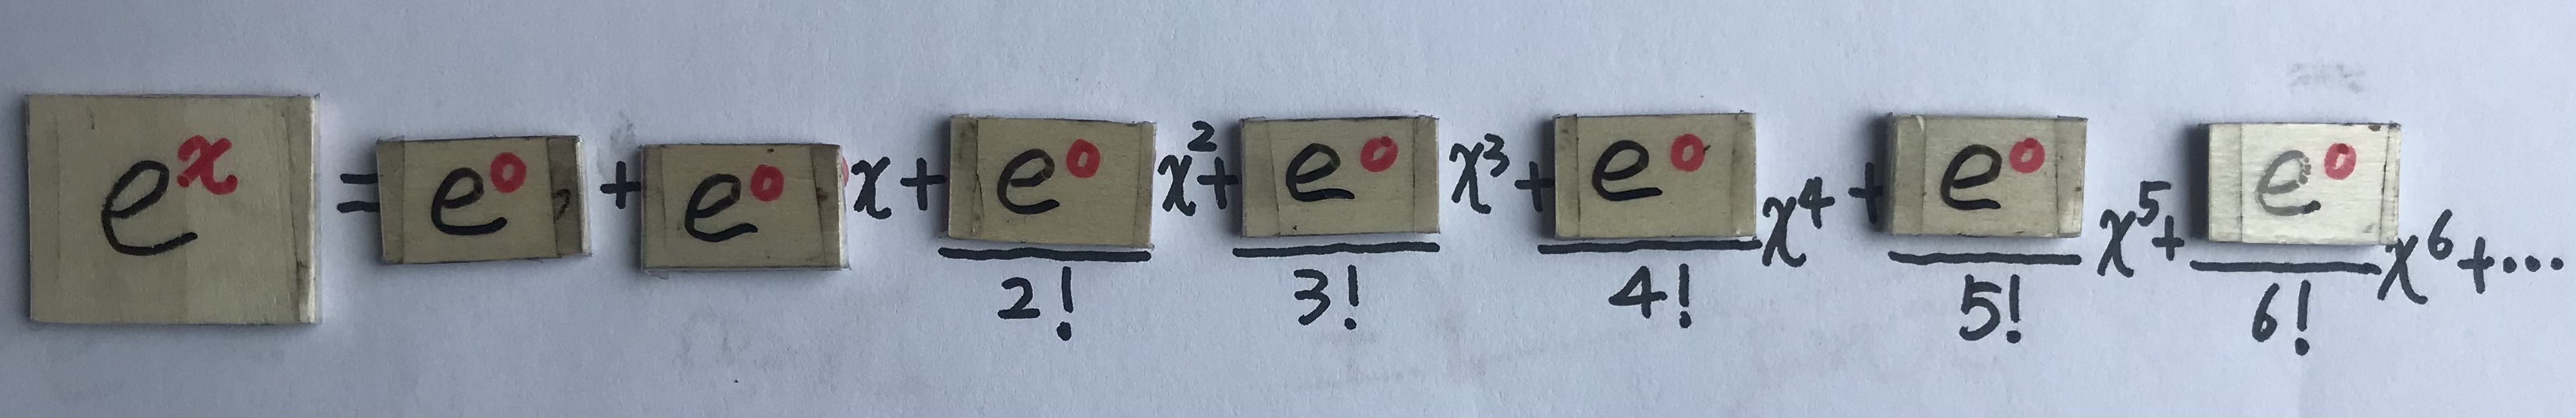 eˣ = e⁰ + e⁰x + e⁰/2! x² + e⁰/3! x³ + e⁰/4! x⁴ + e⁰/5! x⁵ + e⁰/6! x⁶ + ...